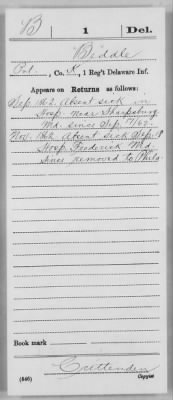 B | 1 | Del.
Biddle
Pvt., Co. K, 1 Reg't Delaware Inf.
Appears on Returns as follows:
Sep. 1862 Absent sick in
Hosp. near Sharpsburg
Md. since Sep. 17/62.
Nov. 1862 Absent sick Sep. 18
Hosp. Frederick Md.
Since removed to Phila
Book mark
Crittenden
(546) Copyist